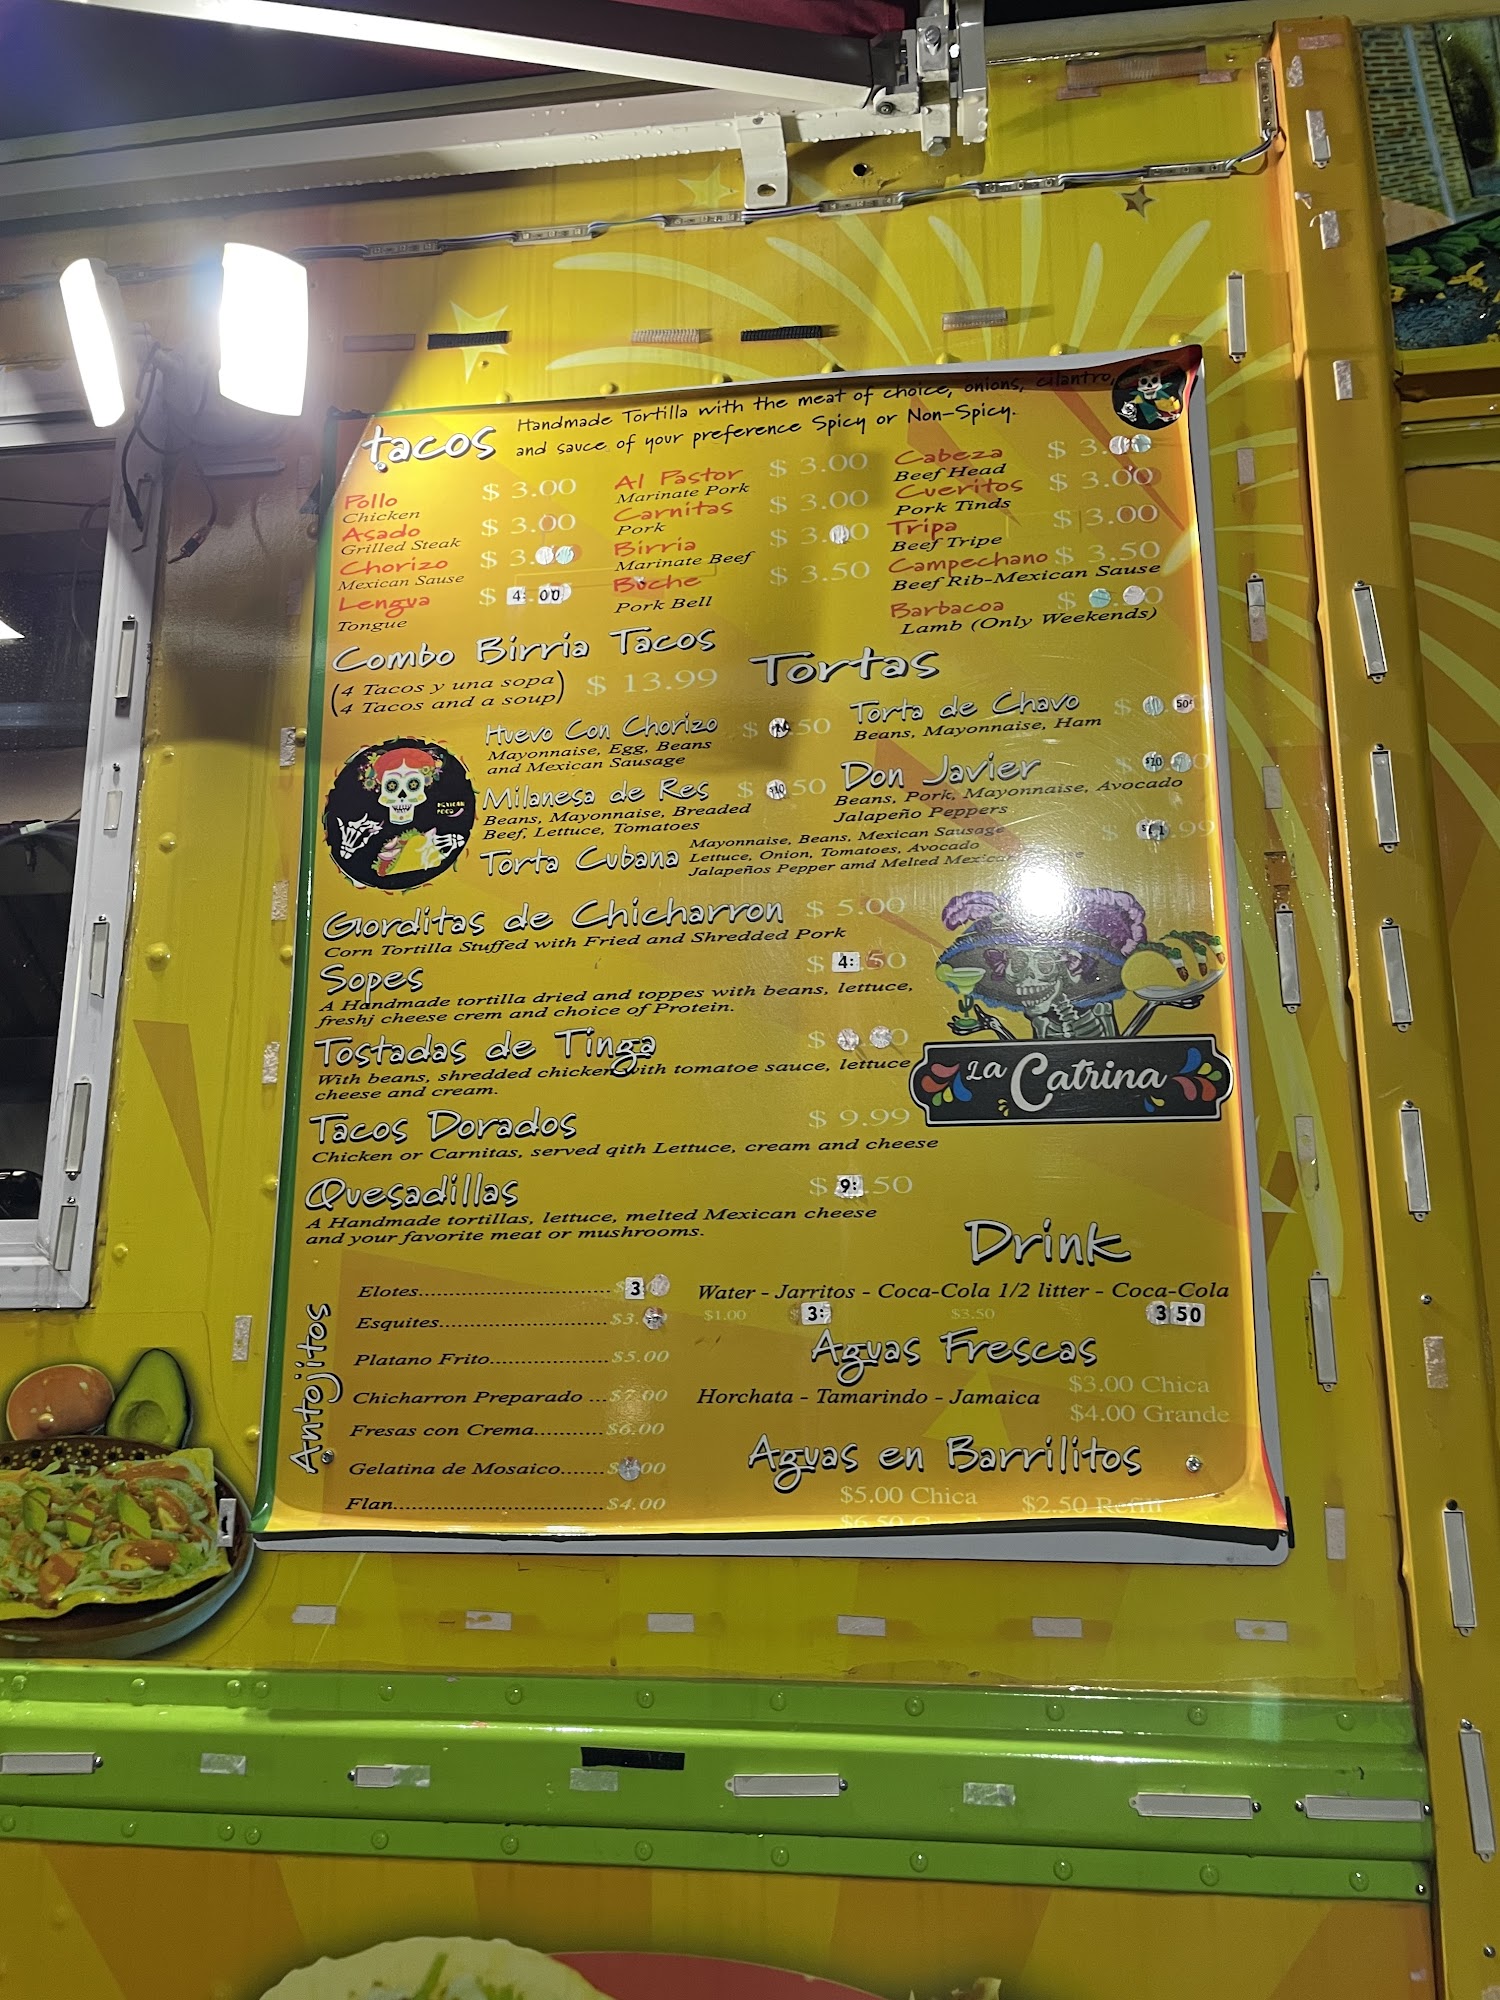 tacos
Handmade Tortilla with the meat of choice, onions, cilantro,
and sauce of your preference Spicy or Non-Spicy.
Pollo $ 3.00
Chicken
Asado $ 3.00
Grilled Steak
Chorizo $ 3.
Mexican Sause
Lengua $ 4: 00
Tongue
Al Pastor $ 3.00
Marinate Pork
Carnitas $ 3.00
Pork
Birria $ 3. 0
Marinate Beef
Buche $ 3.50
Pork Bell
Cabeza $ 3.
Beef Head
Cueritos $ 3.00
Pork Tinds
Tripa $ 3.00
Beef Tripe
Campechano $ 3.50
Beef Rib-Mexican Sause
Barbacoa $ 0
Lamb (Only Weekends)
Combo Birria Tacos
(4 Tacos y una sopa) $ 13.99
(4 Tacos and a soup)
Tortas
Huevo Con Chorizo $ .50
Mayonnaise, Egg, Beans
and Mexican Sausage
Milanesa de Res $ $10 .50
Beans, Mayonnaise, Breaded
Beef, Lettuce, Tomatoes
Torta de Chavo $ 50¢
Beans, Mayonnaise, Ham
Don Javier $ $10 0
Beans, Pork, Mayonnaise, Avocado
Jalapeño Peppers
Torta Cubana $ .99
Mayonnaise, Beans, Mexican Sausage
Lettuce, Onion, Tomatoes, Avocado
Jalapeños Pepper amd Melted Mexican
MEXICAN
FOOD
Gorditas de Chicharron $ 5.00
Corn Tortilla Stuffed with Fried and Shredded Pork
Sopes $ 4: 50
A Handmade tortilla dried and toppes with beans, lettuce,
freshj cheese crem and choice of Protein.
Tostadas de Tinga $ 0
With beans, shredded chicken with tomatoe sauce, lettuce
cheese and cream.
La Catrina
Tacos Dorados $ 9.99
Chicken or Carnitas, served qith Lettuce, cream and cheese
Quesadillas $ 9: .50
A Handmade tortillas, lettuce, melted Mexican cheese
and your favorite meat or mushrooms.
Antojitos
Elotes........................... $ 3
Esquites........................ $3.
Platano Frito................. $5.00
Chicharron Preparado ... $7.00
Fresas con Crema.......... $6.00
Gelatina de Mosaico....... $ 00
Flan............................... $4.00
Drink
Water - Jarritos - Coca-Cola 1/2 litter - Coca-Cola
$1.00 3: $3.50 3 50
Aguas Frescas
Horchata - Tamarindo - Jamaica
$3.00 Chica
$4.00 Grande
Aguas en Barrilitos
$5.00 Chica $2.50 Refill
$6.50